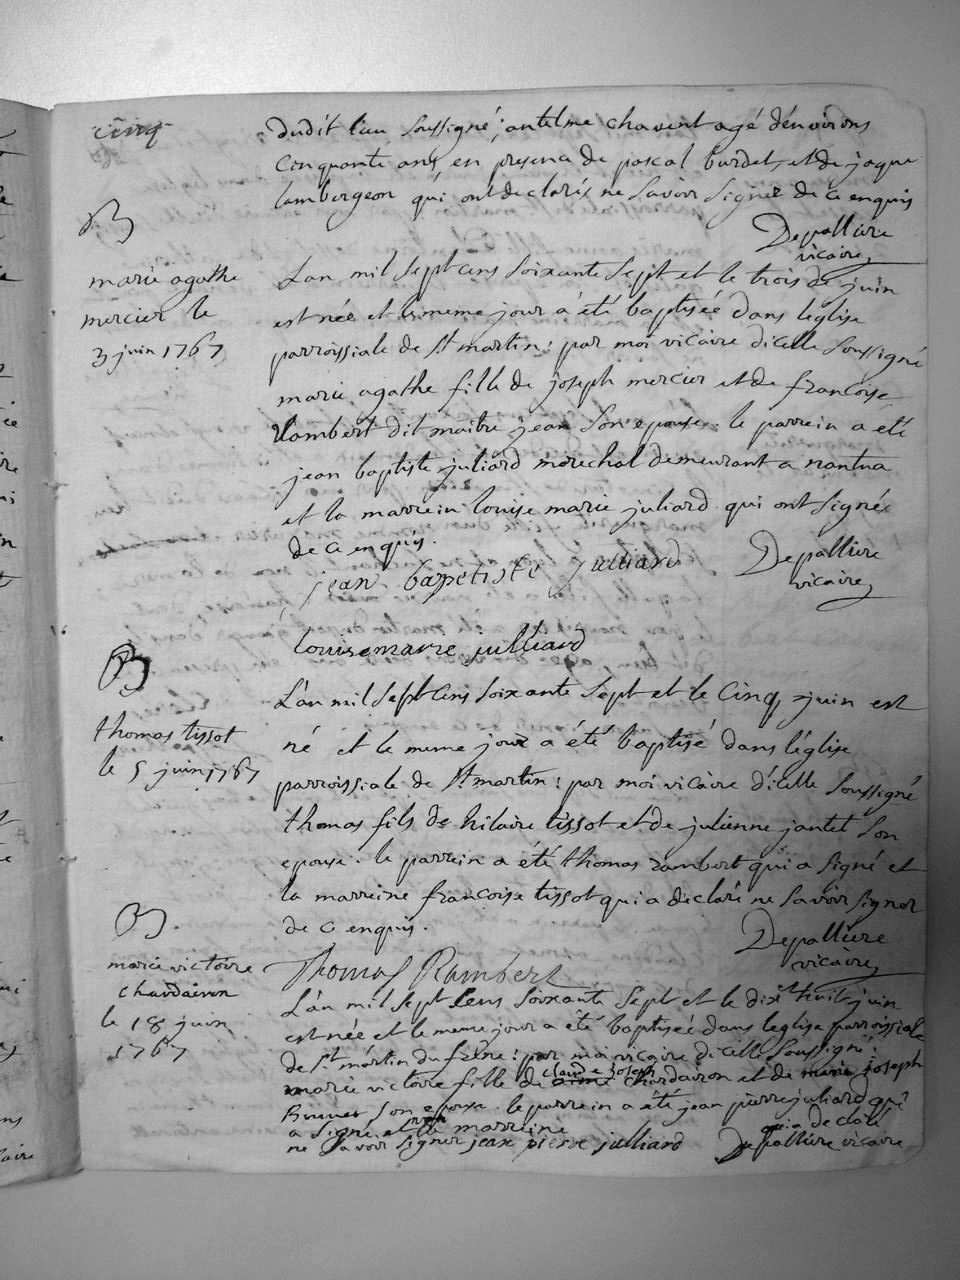 cinq
dudit lieu soussigné; antelme chavent agé dénvirons
cinquante ans en presence de pascal burdet, et de jaque
lambergeon qui ont declarés ne savoir signer de ce enquis
Depalliere
vicaire
B
marie agathe
mercier le
3 juin 1767
L'an mil sept cens soixante sept et le trois de juin
est née et le meme jour á été baptisée dans leglise
parroissiale de St martin: par moi vicaire dicelle soussigné
marie agathe fille de joseph mercier et de francoise
Rambert dit maitre jean son epouse: le parrein a eté
jean baptiste juliard marechal demeurant a nantua
et la marrein louise marie juliard qui ont signés
de ce enquis.
jean bapetiste julliard
Depalliere
vicaire
louise marie julliard
B
thomas tissot
le 5 juin 1767
L'an mil sept cens soixante sept et le cinq juin est
né et le meme jour a été baptisé dans l'église
parroissiale de St martin: par moi vicaire d'icelle soussigné
thomas fils de hilaire tissot et de julienne jantet son
epouse. le parrein a été thomas rambert qui a signé et
la marreine francoise tissot qui a declaré ne savoir signer
de ce enquis.
Depalliere
vicaire
Thomas Rambert
B.
marie victoire
chardairon
le 18 juin
1767
L'an mil sept cens soixante sept et le dix huit juin
est née et le meme jour a été baptisée dans leglise parroissiale
de St martin du frêne: par moi vicaire dicelle soussigné:
marie victoire fille de claude joseph chardairon et de joseph
son epouse. le parrein a été jean pierre juliard qui
a signé et la marreine qui a declaré
ne savoir signer jean pierre julliard Depalliere vicaire